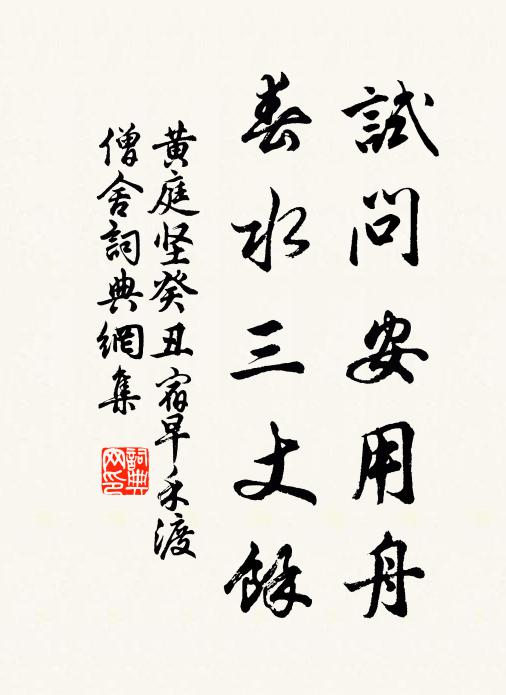 試問安用舟
春水三丈餘
黄庭坚癸丑宿早禾渡
僧舍詞典網集
詞典网印